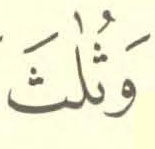 وَثُلٰثَ